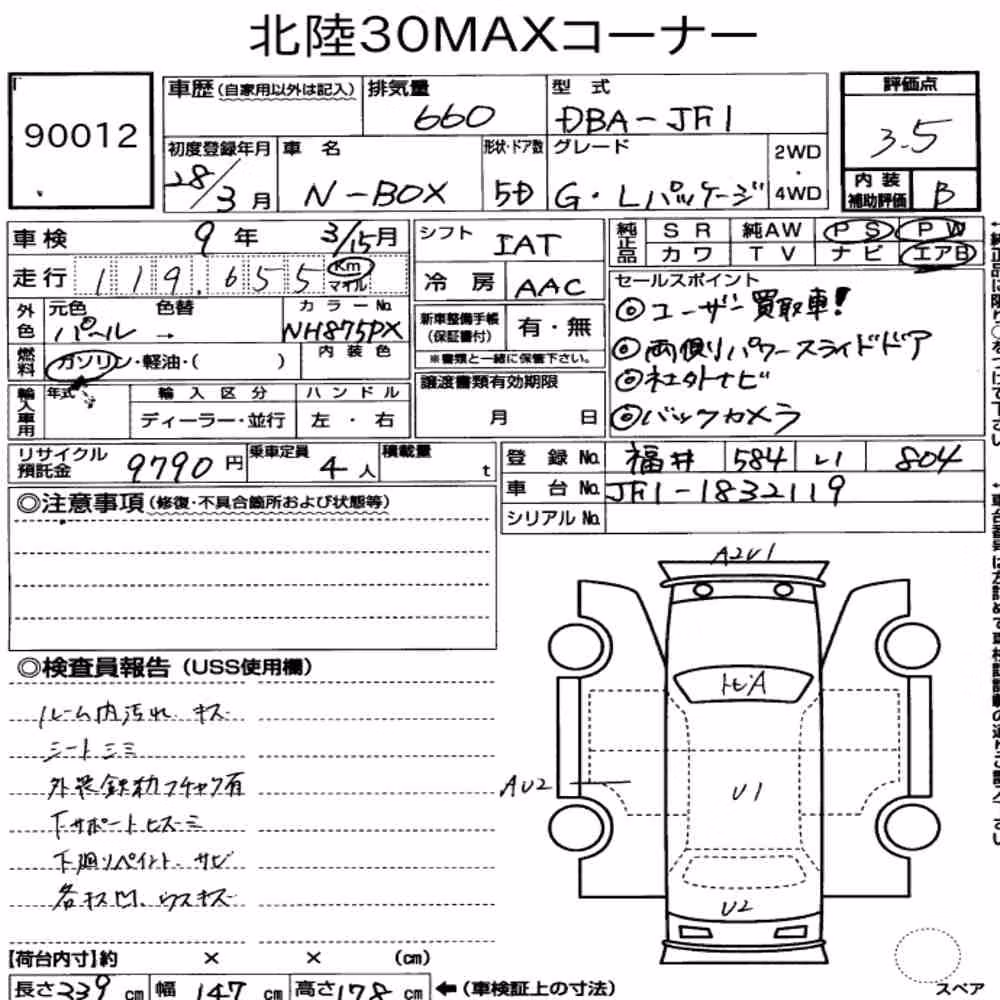 北陸30MAXコーナー
90012
車歴(自家用以外は記入) 排気量 660 型式 DBA-JF1
評価点 3.5
初度登録年月 28/3月 車名 N-BOX 形状・ドア数 5D グレード G・Lパッケージ 2WD・4WD
内装補助評価 B
車検 9年 3/15月
走行 119,655 Km マイル
シフト IAT
冷房 AAC
純正品 SR 純AW PS PW
カワ TV ナビ エアB
外色 元色 パール → 色替 カラーNo. NH875PX
燃料 ガソリン・軽油・( ) 内装色
新車整備手帳(保証書付) 有・無
※書類と一緒に保管下さい。
譲渡書類有効期限
月 日
セールスポイント
◎ユーザー買取車!
◎両側パワースライドドア
◎社外ナビ
◎バックカメラ
輸入車用 年式 輸入区分 ハンドル
ディーラー・並行 左・右
リサイクル預託金 9790円 乗車定員 4人 積載量 t
登録No. 福井 584 い 804
車台No. JF1-1832119
シリアルNo.
◎注意事項(修復・不具合箇所および状態等)
◎検査員報告(USS使用欄)
ルーム内汚れ、キズ
シートシミ
外装鉄粉フチャク有
下廻リペイント、サビ
各キズ凹、ウスキズ
A2U1
トビA
AU2
U1
U2
スペア
【荷台内寸】約 × × (cm)
長さ339cm 幅147cm 高さ178cm ←(車検証上の寸法)